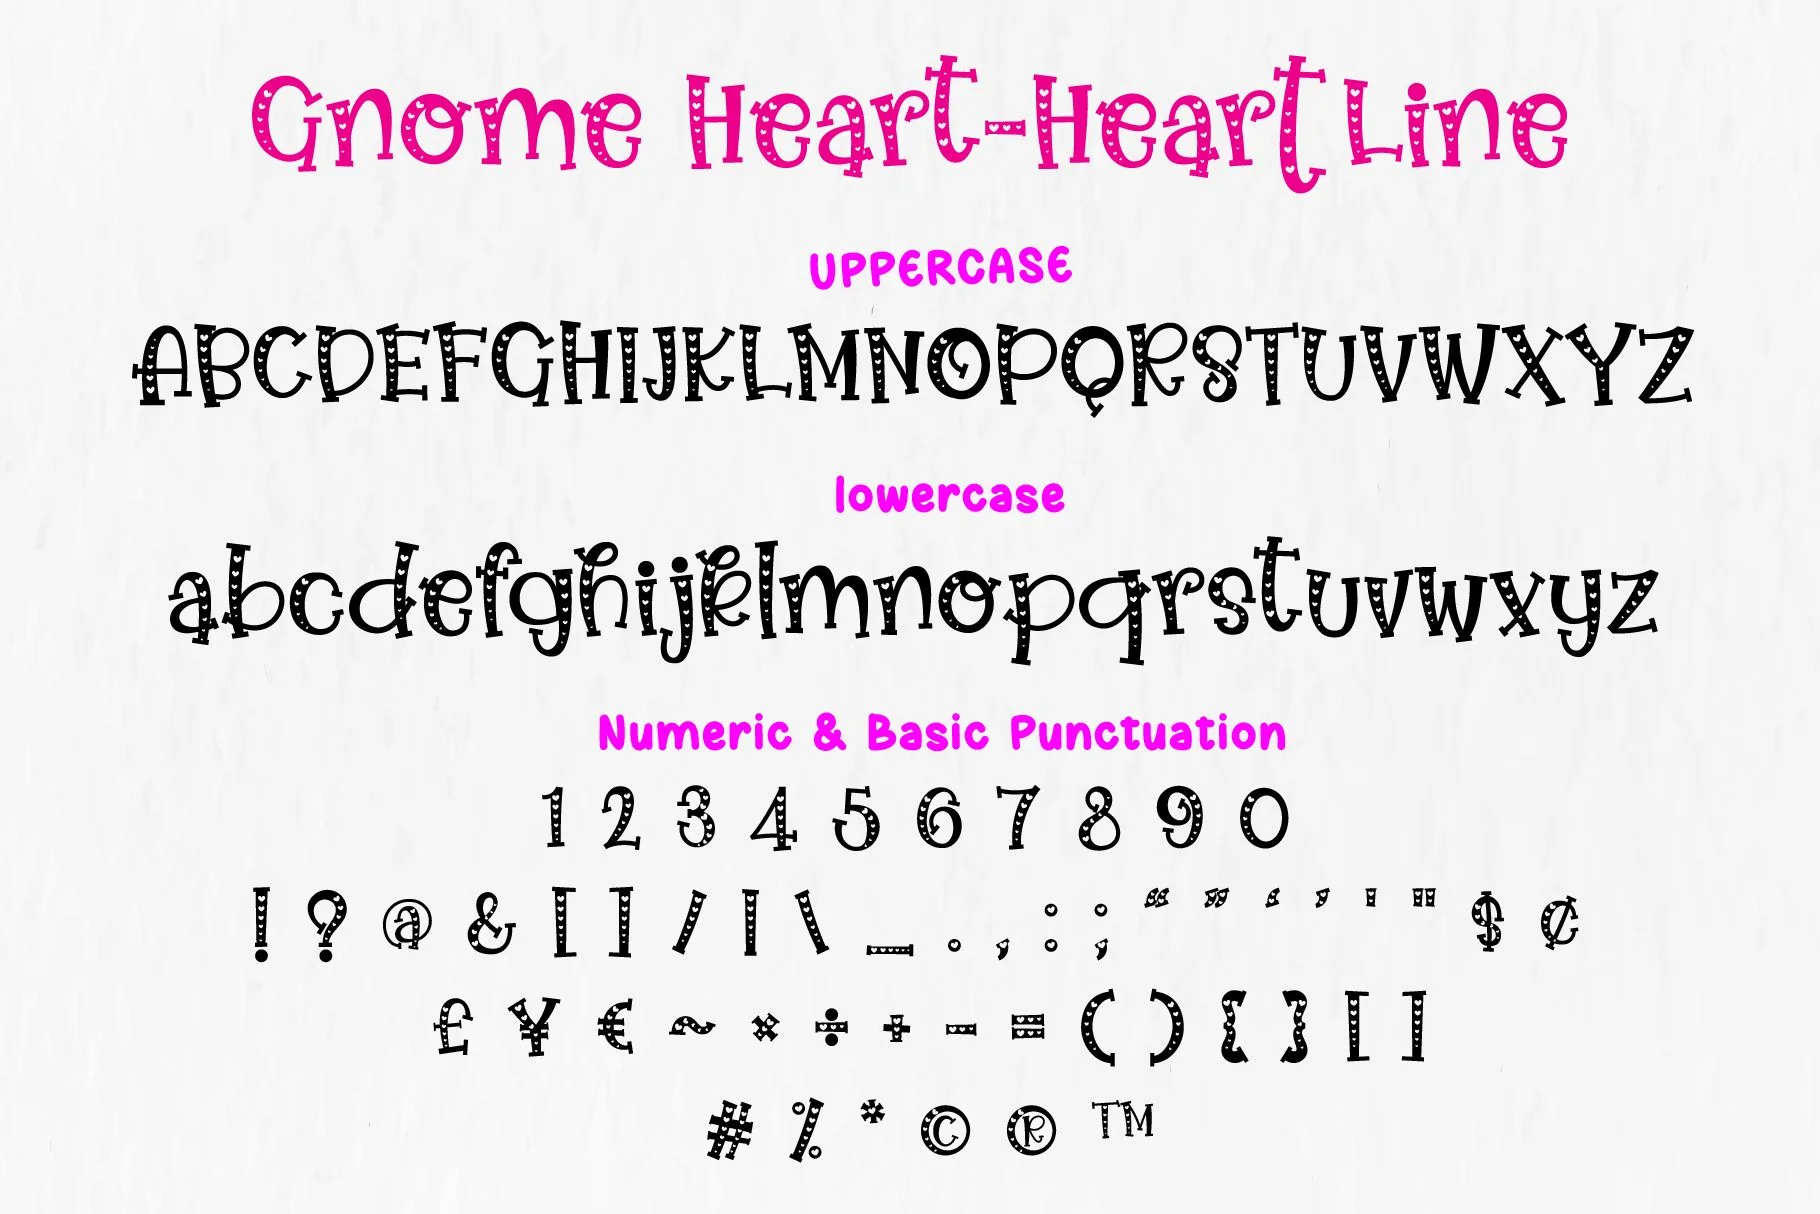 Gnome Heart-Heart Line
UPPERCASE
ABCDEFGHIJKLMNOPQRSTUVWXYZ
lowercase
abcdefghijklmnopqrstuvwxyz
Numeric & Basic Punctuation
1 2 3 4 5 6 7 8 9 0
! ? @ & [ ] / | \ _ . , : ; “ ” ‘ ’ ' " $ ¢
£ ¥ € ~ × ÷ + - = ( ) { } [ ]
# % * © ® ™